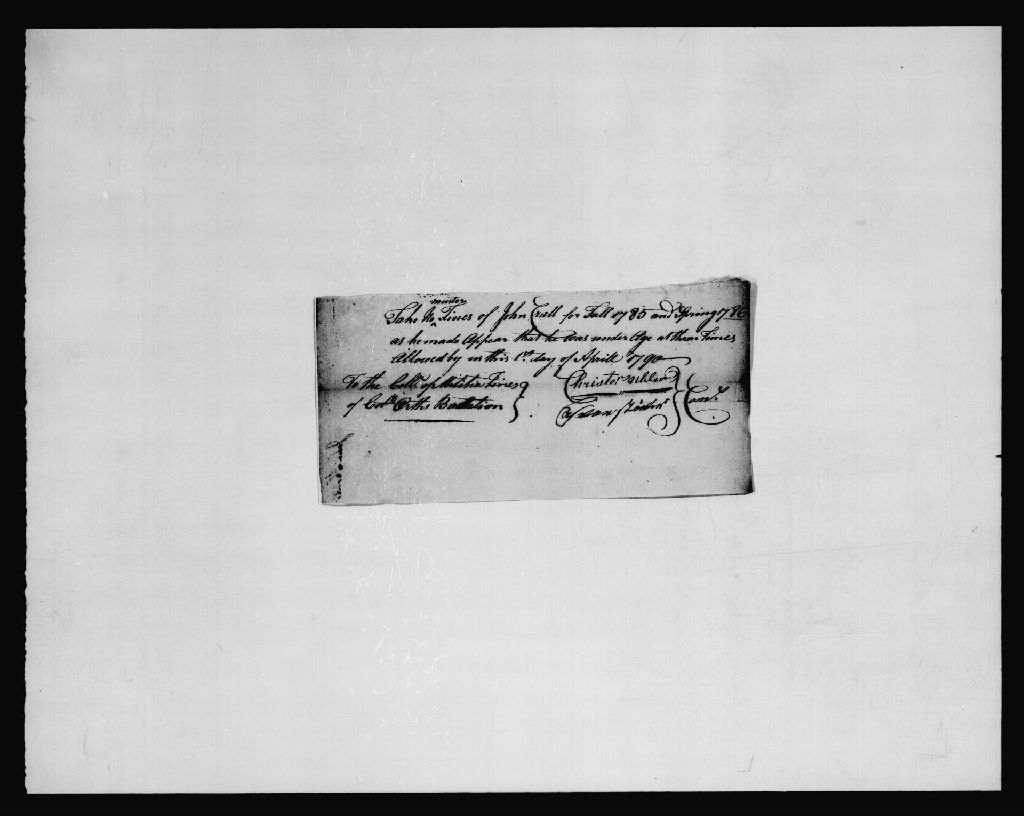 muster
Take No Fines of John Crall for Fall 1785 and Spring 1786
as he made Appear that he was under Age at them Times
Allowed by us this 1st day of Aprill 1790
To the Coll. of Militia Fines
of Coll. Orths Battalion
Christor Uhler
Com.rs